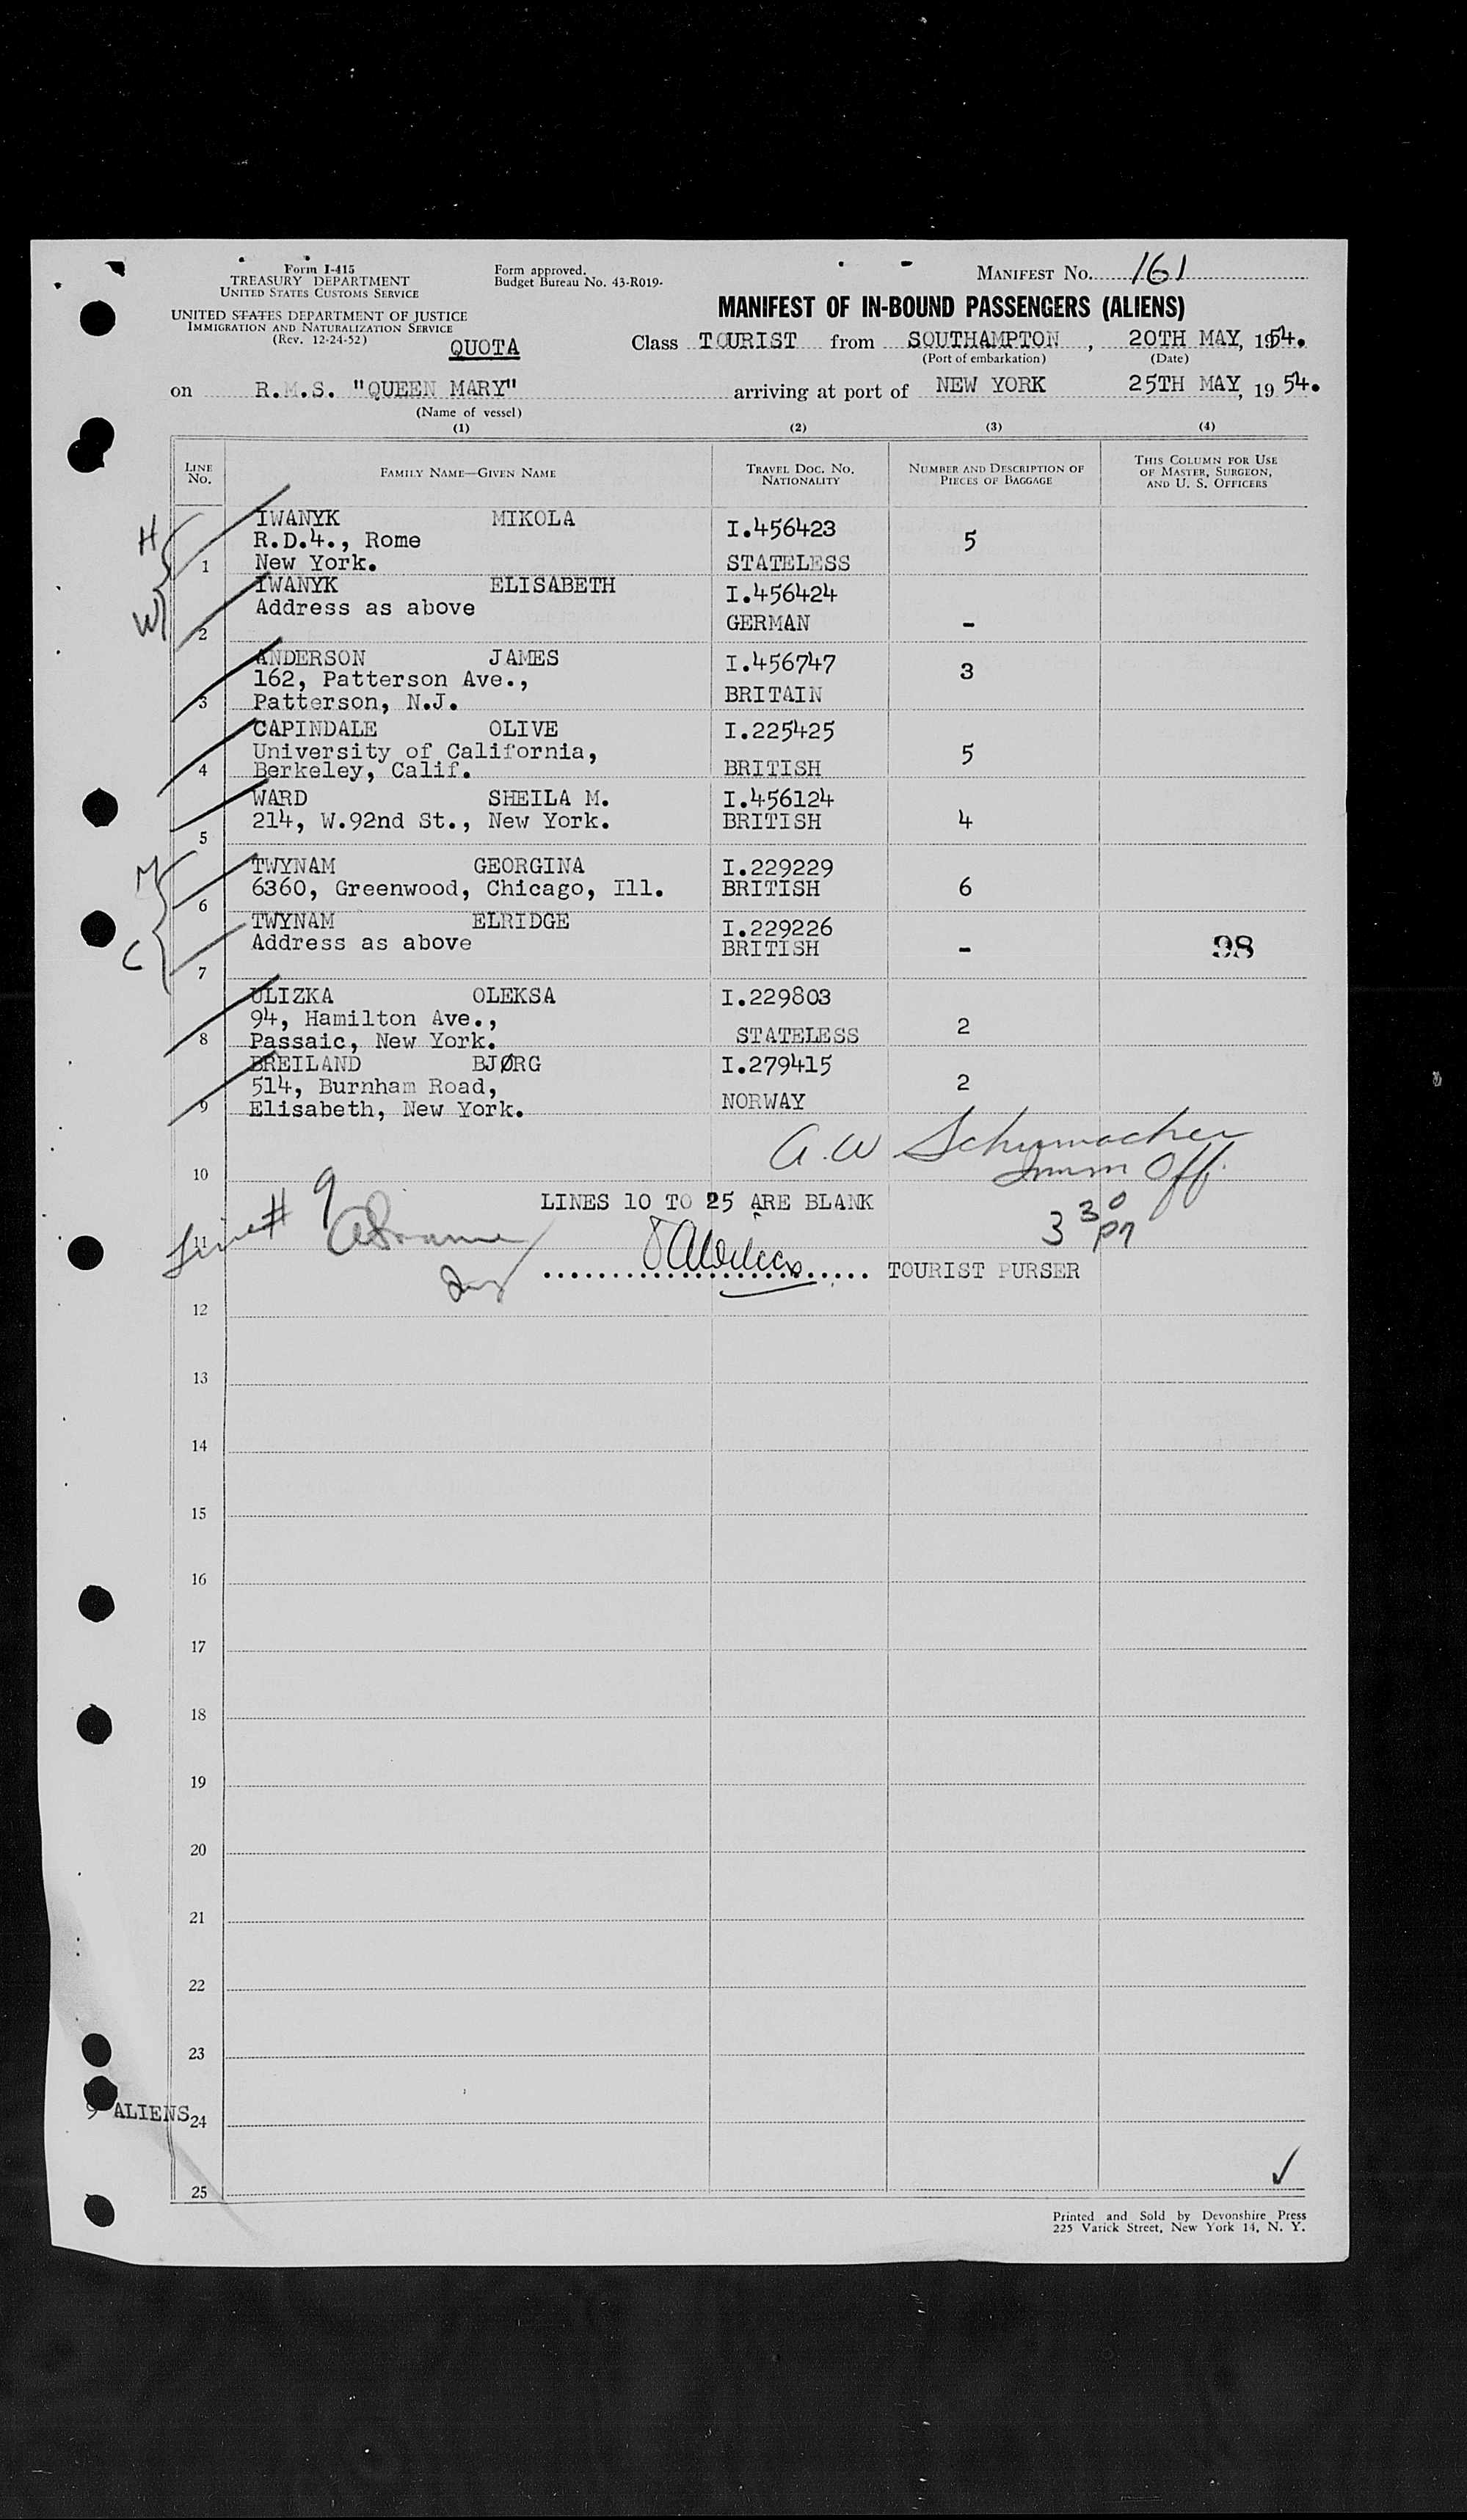 Form I-415
TREASURY DEPARTMENT
UNITED STATES CUSTOMS SERVICE
UNITED STATES DEPARTMENT OF JUSTICE
IMMIGRATION AND NATURALIZATION SERVICE
(Rev. 12-24-52)
QUOTA
Form approved.
Budget Bureau No. 43-R019-
MANIFEST NO. 161
MANIFEST OF IN-BOUND PASSENGERS (ALIENS)
Class TOURIST from SOUTHAMPTON, 20TH MAY, 1954.
(Port of embarkation) (Date)
on R.M.S. "QUEEN MARY" arriving at port of NEW YORK 25TH MAY, 19 54.
(Name of vessel)
(1) (2) (3) (4)
LINE NO. FAMILY NAME—GIVEN NAME TRAVEL DOC. NO. NATIONALITY NUMBER AND DESCRIPTION OF PIECES OF BAGGAGE THIS COLUMN FOR USE OF MASTER, SURGEON, AND U. S. OFFICERS
H
IWANYK MIKOLA I.456423
R.D.4., Rome 5
1 New York. STATELESS
W
IWANYK ELISABETH I.456424
Address as above
2 GERMAN -
ANDERSON JAMES I.456747
162, Patterson Ave., 3
3 Patterson, N.J. BRITAIN
CAPINDALE OLIVE I.225425
University of California, 5
4 Berkeley, Calif. BRITISH
WARD SHEILA M. I.456124
214, W.92nd St., New York. BRITISH 4
5
M
TWYNAM GEORGINA I.229229
6360, Greenwood, Chicago, Ill. BRITISH 6
6
C
TWYNAM ELRIDGE I.229226
Address as above BRITISH - 98
7
ULIZKA OLEKSA I.229803
94, Hamilton Ave., 2
8 Passaic, New York. STATELESS
BREILAND BJØRG I.279415
514, Burnham Road, 2
9 Elisabeth, New York. NORWAY
A.W Schumacher
Imm Off.
10
LINES 10 TO 25 ARE BLANK
Line # 9
3 30 pm
11
TOURIST PURSER
12
13
14
15
16
17
18
19
20
21
22
23
9 ALIENS
24
25
Printed and Sold by Devonshire Press
225 Varick Street, New York 14, N. Y.